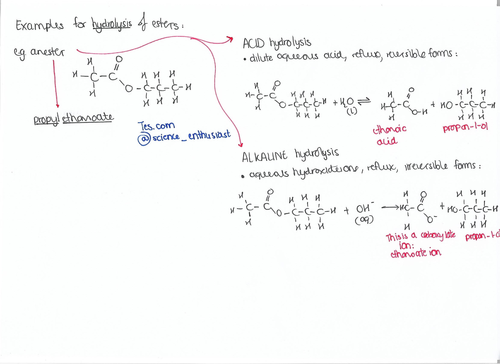 Examples for hydrolysis of esters:
eg an ester
H H H H
H-C-C O
H O-C-C-C-H
H H H
propyl ethanoate
Tes.com
@science_enthusiast
ACID hydrolysis
• dilute aqueous acid, reflux, reversible forms:
H O H H H H O H H H
H-C-C O-C-C-C-H + H2O ⇌ H-C-C O-H + HO-C-C-C-H
H H H H (l) H H H H
ethanoic acid
propan-1-ol
ALKALINE hydrolysis
• aqueous hydroxide ions, reflux, irreversible forms:
H O H H H H O H H H
H-C-C O-C-C-C-H + OH⁻ → HC-C O⁻ + HO-C-C-C-H
H H H H (aq) H H H H
This is a carboxylate
ion:
ethanoate ion
propan-1-ol